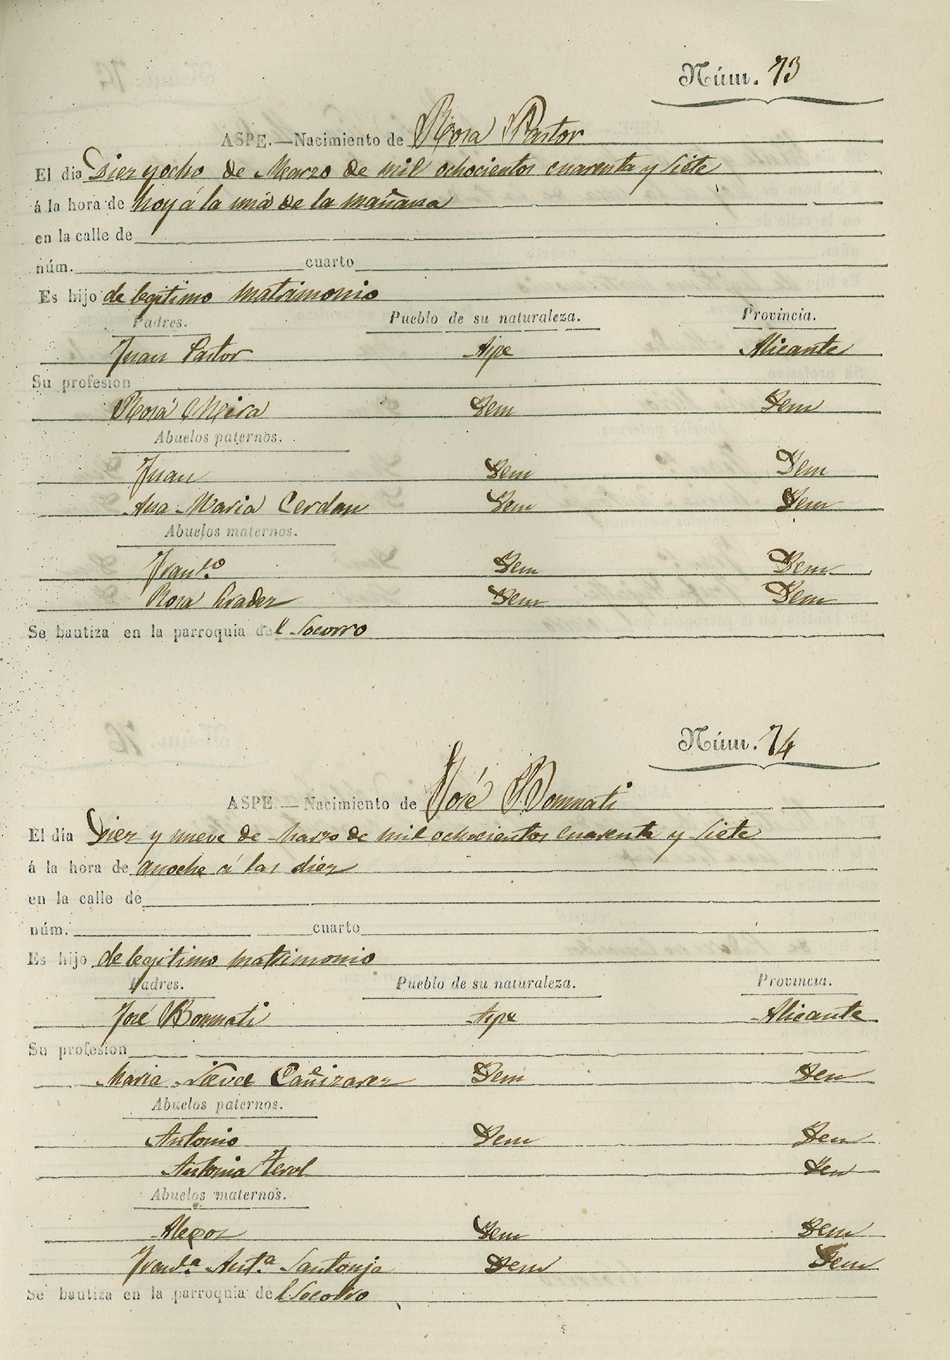 Núm. 73
ASPE.—Nacimiento de Rosa Pastor
El dia Diez y ocho de Marzo de mil ochocientos cuarenta y siete
á la hora de hoy á la una de la mañana
en la calle de
núm. cuarto
Es hijo de legitimo matrimonio
Padres. Pueblo de su naturaleza. Provincia.
Juan Pastor Aspe Alicante
Su profesion
Rosa Mira Idem Idem
Abuelos paternos.
Juan Idem Idem
Ana Maria Cerdan Idem Idem
Abuelos maternos.
Franco Idem Idem
Rosa Idem Idem
Se bautiza en la parroquia del Socorro
Núm. 74
ASPE.—Nacimiento de José Bonmati
El día Diez y nueve de Marzo de mil ochocientos cuarenta y siete
á la hora de anoche á las diez
en la calle de
núm. cuarto
Es hijo de legitimo matrimonio
Padres. Pueblo de su naturaleza. Provincia.
José Bonmati Aspe Alicante
Su profesion
Maria Nieves Cañizares Idem Idem
Abuelos paternos.
Antonio Idem Idem
Antonia Terol Idem
Abuelos maternos.
Idem Idem
Franca Anta Santonja Idem Idem
Se bautiza en la parroquia del Socorro